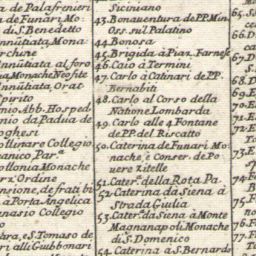 de Palafrenieri
de Funari, Mo:
di S. Benedetto
nnütiata, Mona
nnütiata al foro
Monache Neofite
nnütiata, Orat
pirito
nio Abb. Hosped
nio da Padua de
oghesi
ollinare Collegio
anico, Par.ª
ollonia Monache
erz'Ordine
nsione, de frati bi
à Porta Angelica
anasio Collegio
o
ra, e S. Tomaso de
ri alli Giubbonari
Siciniano
43. Bonauentura de PP. Min
Oss. sul Palatino
44. Bonosa
45. Brigida à Piaz. Farnese
46. Caio à Termini
47. Carlo à Catinari de PP.
Bernabit
48. Carlo al Corso della
Natione Lombarda
49. Carlo alle 4 Fontane
de PP. del Riscatto
50. Caterina de Funari Mo
nache, è Conser. de Po
uere Zitelle
51. Cater.ª della Rota Pa.
52. Caterina da Siena à
Strada Giulia
53. Cater.ª da Siena à Monte
Magnanapoli Monache
di S. Domenico
54. Caterina à S. Bernards
65. S
66. D